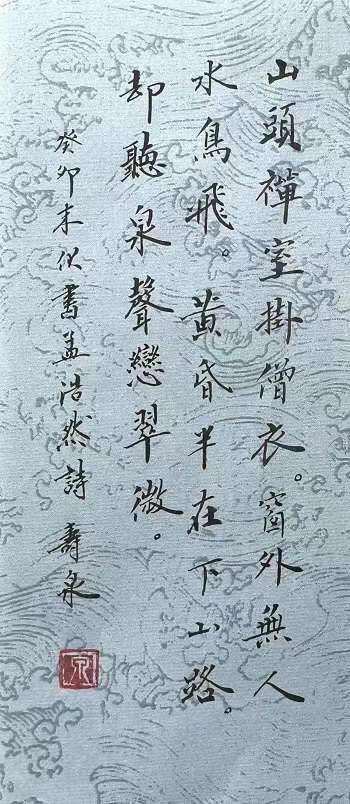 山頭禪室掛僧衣。窗外無人
水鳥飛。黃昏半在下山路。
却聽泉聲戀翠微。
癸卯末伏書孟浩然詩 壽泉